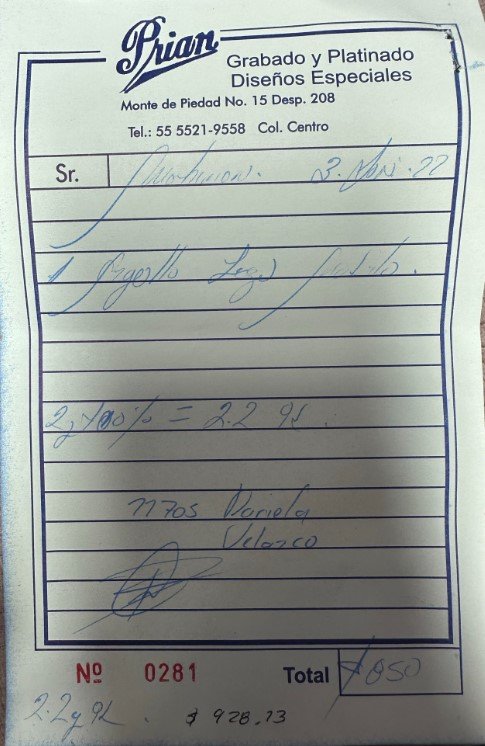 Prian
Grabado y Platinado
Diseños Especiales
Monte de Piedad No. 15 Desp. 208
Tel.: 55 5521-9558 Col. Centro
Sr. 22
1
2g+10% = 2.2 gk.
11705 Mariela
Velazco
Nº 0281 Total $850
2.2g gk. $ 928.13